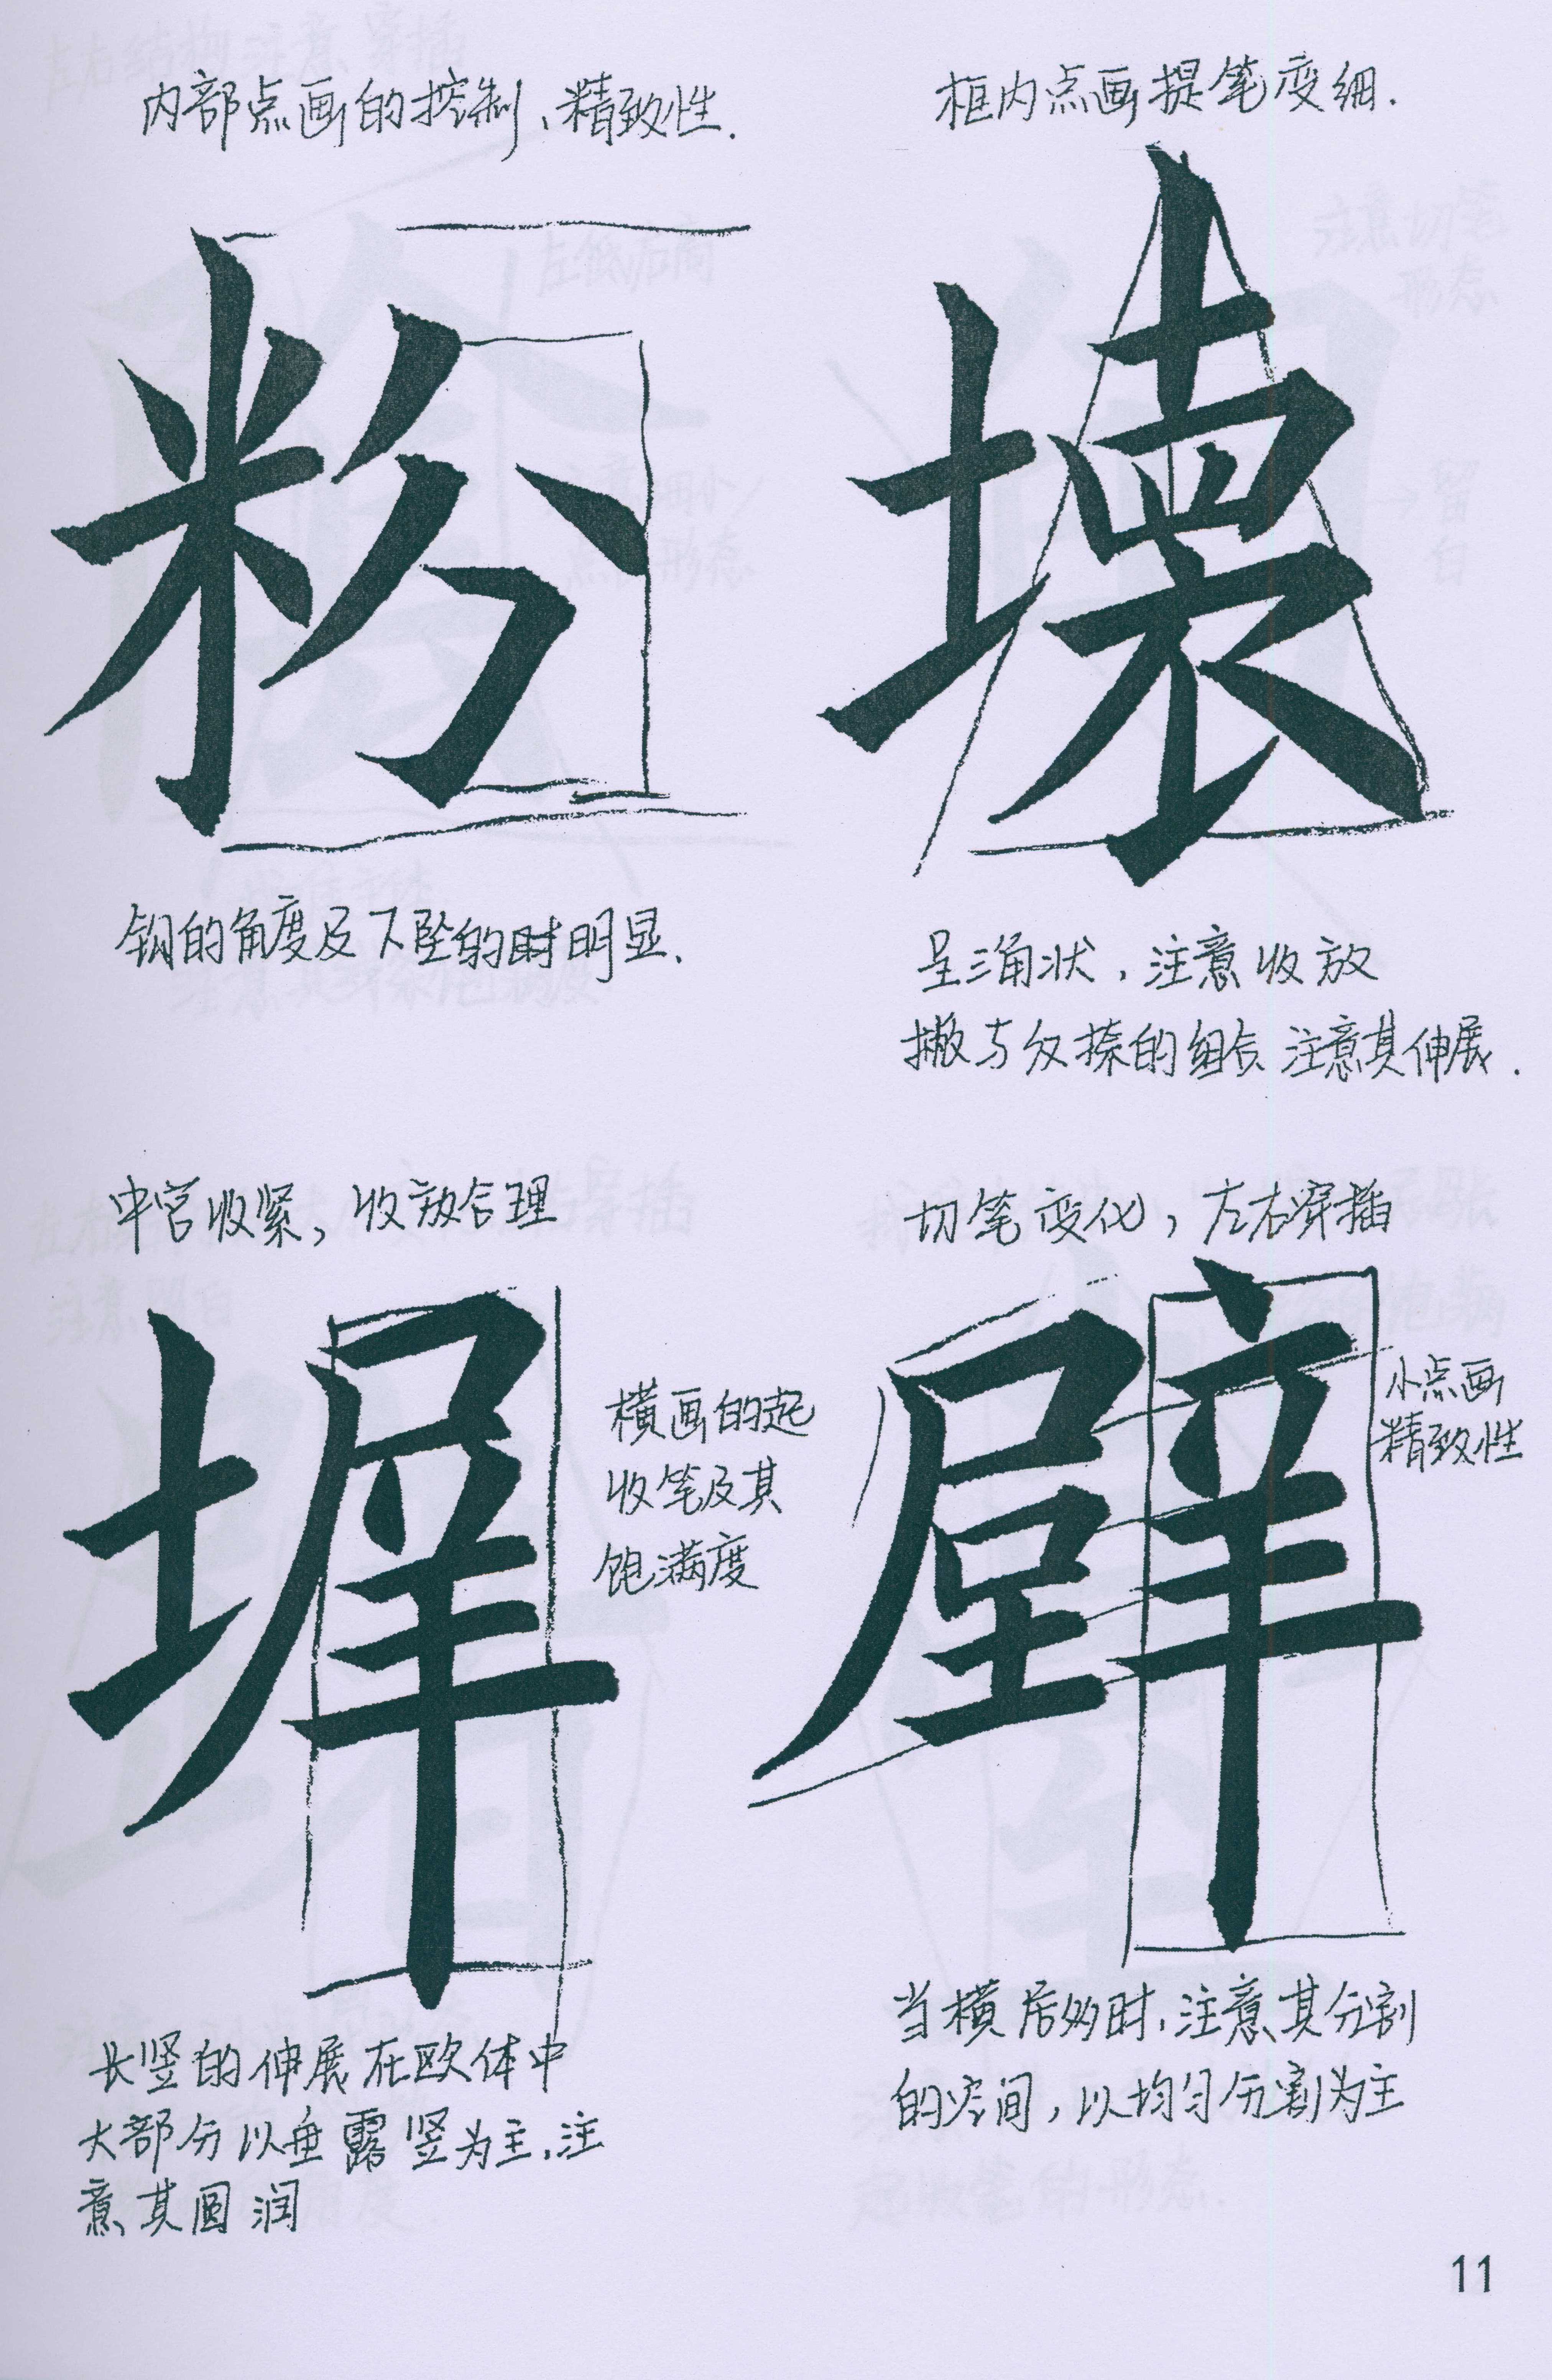 内部点画的控制、精致性.
粉
钩的角度及下坠的时明显.
框内点画提笔变细.
壊
呈三角状,注意收放
撇与反捺的组合 注意其伸展.
中宫收紧,收放合理
墀
横画的起
收笔及其
饱满度
长竖的伸展在欧体中
大部分以垂露竖为主,注
意其圆润
切笔变化,左右穿插
壁
小点画
精致性
当横居多时,注意其分割
的空间,以均匀分割为主
11